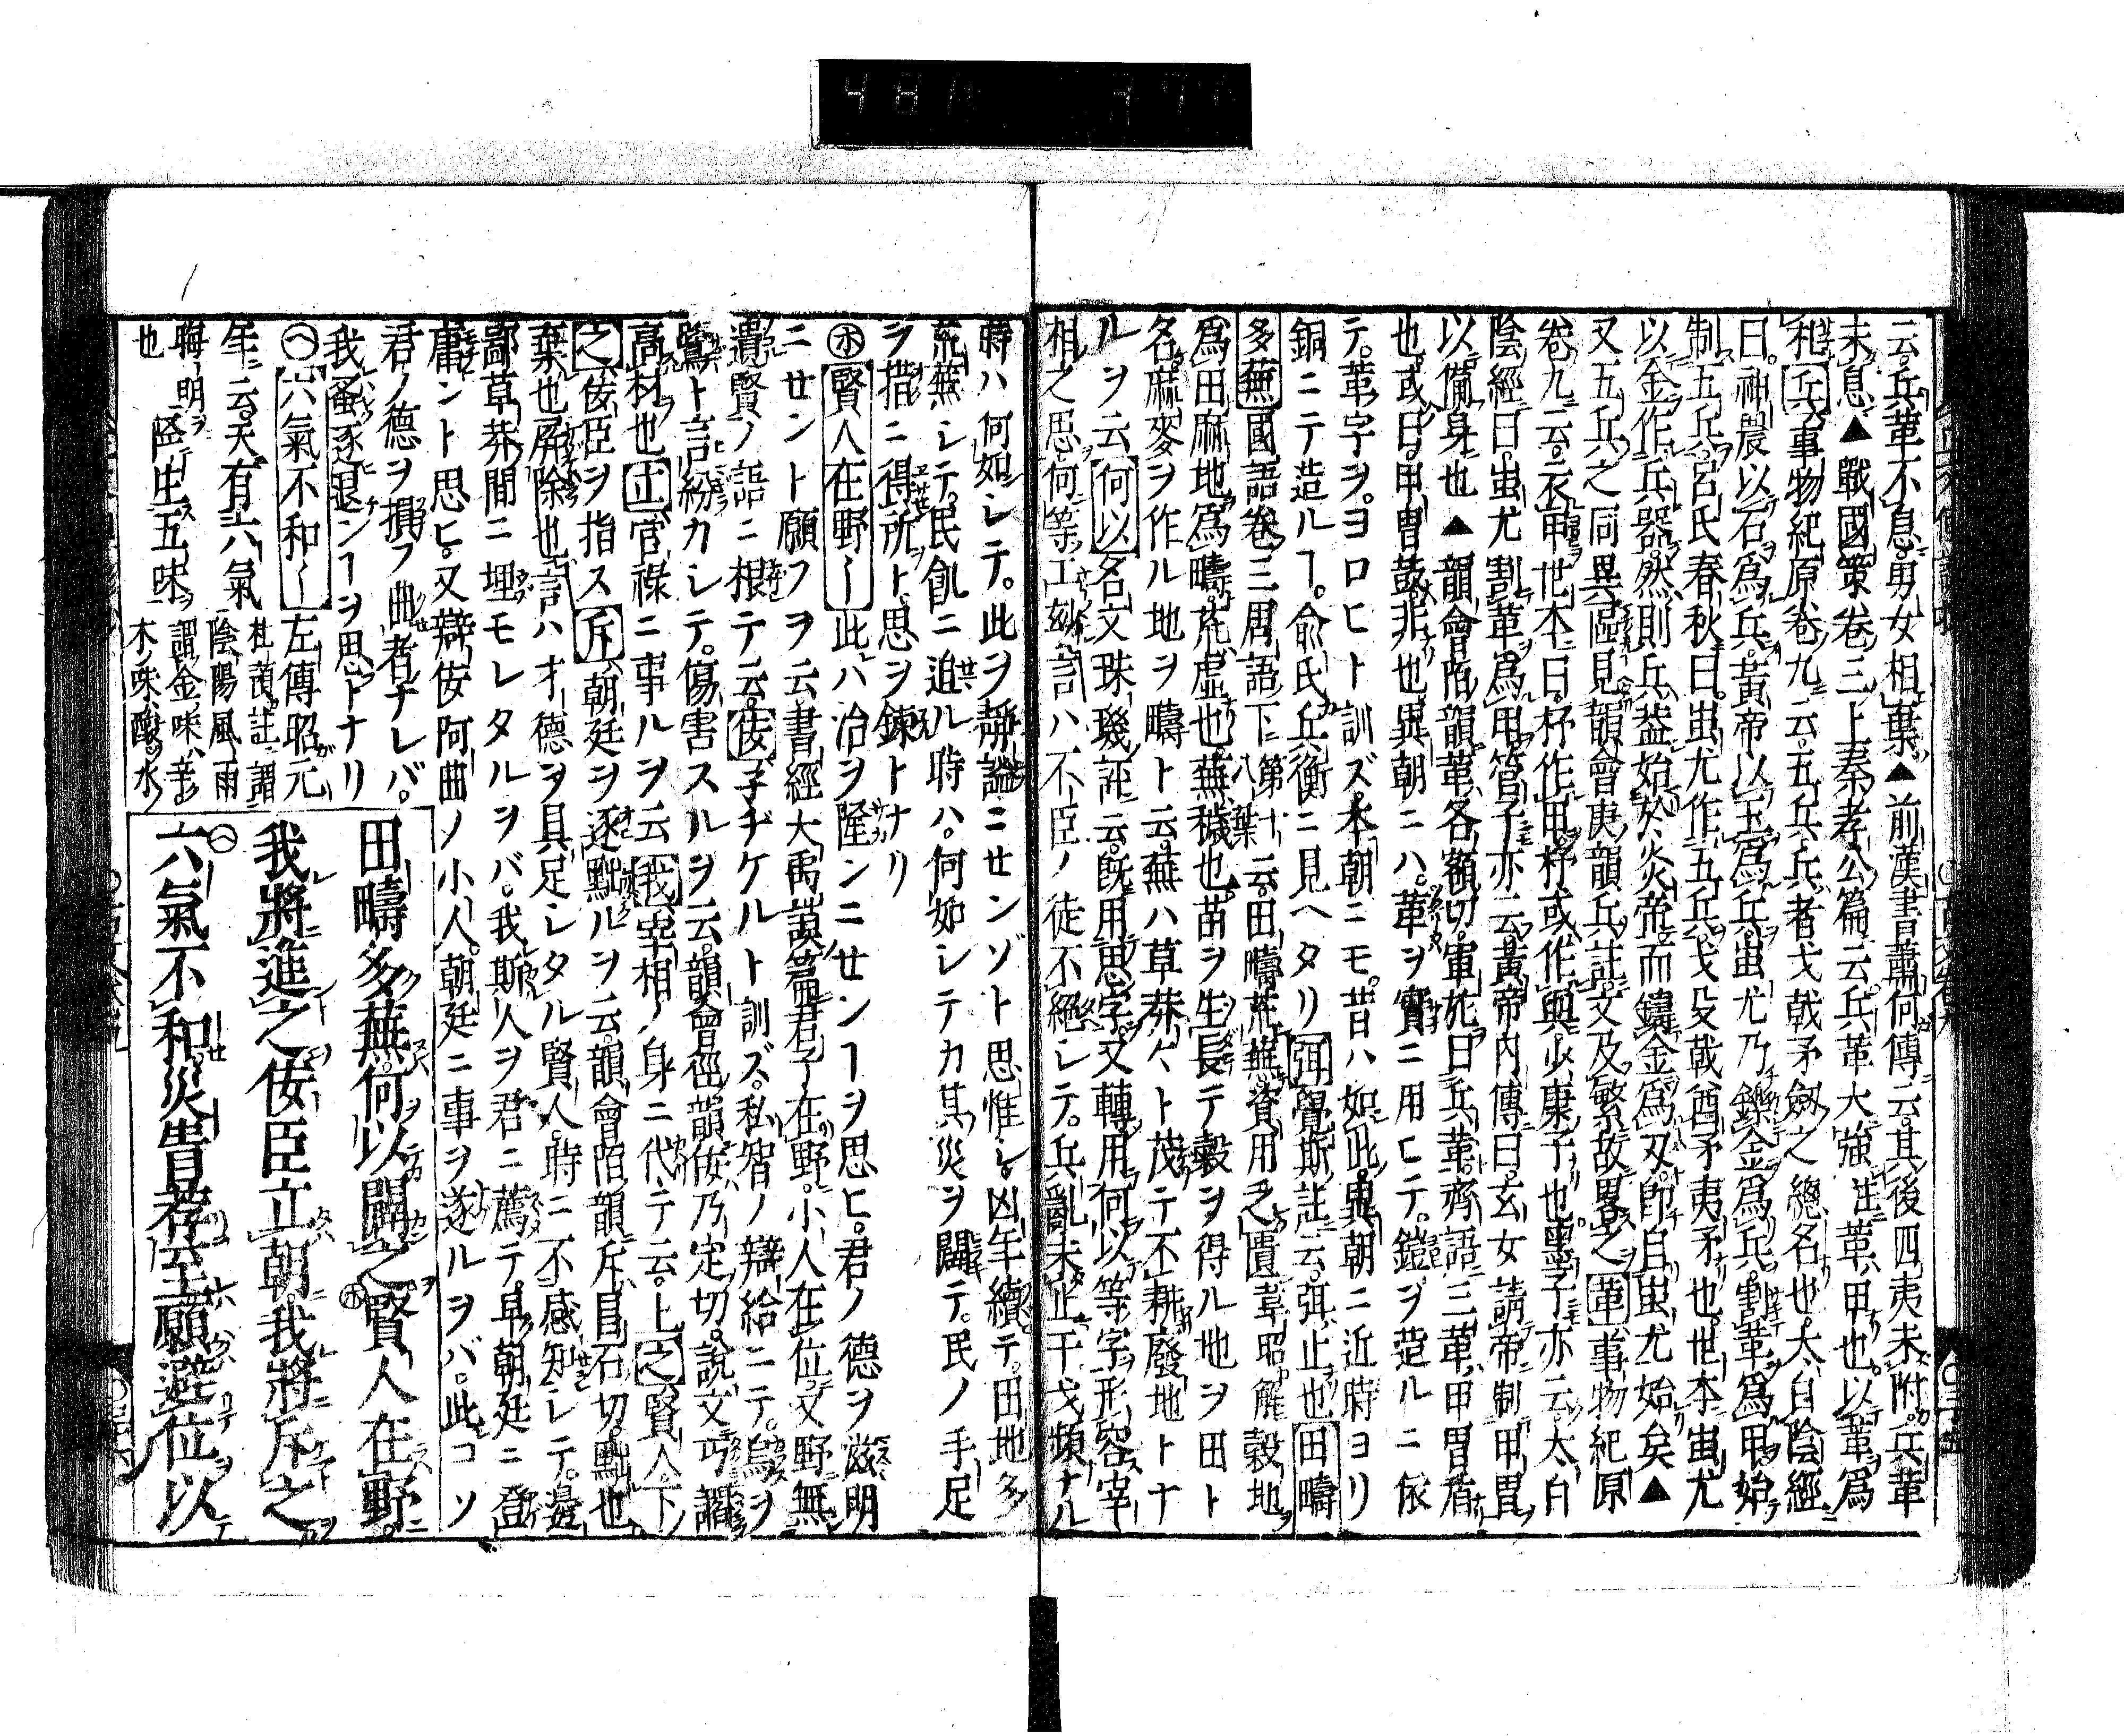 云。兵革不息。男女相棄▲前漢書蕭何傳云。其後四夷未附。兵革
未息▲戰國策卷三上秦孝公篇云兵革大強註革甲也。以革爲
札兵事物紀原卷九云。五兵兵者戈戟矛劔之總名也。太白陰經
曰。神農以石爲兵。黃帝以玉爲兵。蚩尤乃鑠金爲兵。割革爲甲。始
制五兵。呂氏春秋曰。蚩尤作五兵。戈殳戟酋矛夷矛也。世本蚩尤
以金作兵器。然則兵盖始於炎帝。而鑄金爲刃。即自蚩尤始矣▲
又五兵之同異區見韻會庚韻兵註。文及繁故畧之革事物紀原
卷九云。衣甲世本曰。杼作甲。杼或作與。少康子也。墨子亦云。太白
陰經曰。蚩尤割革爲甲。管子亦云。黃帝內傳曰。玄女請帝制甲冑
以備身也▲韻會陌韻革各額切。軍旅曰兵革。齊語三革。甲冑盾
也。或曰。甲冑鼓非也異朝ニハ。革ヲ實ニ用ヒテ。鎧ヲ造ルニ依
テ。革字ヲ。ヨロヒト訓ズ。本朝ニモ。昔ハ如此。異朝ニ近時ヨリ
銅ニテ造ルヿ。俞氏兵衡ニ見ヘタリ。弭覺斯註云。弭止也田疇
多蕪國語卷三周語下第十八葉云。田疇荒蕪。資用乏匱韋昭解穀地
爲田麻地爲疇。荒虛也。蕪穢也。苗ヲ生長テ穀ヲ得ル地ヲ田ト
名。麻麥ヲ作ル地ヲ疇ト云。蕪ハ草莽々ト茂テ不耕廢地トナ
ルヲ云何以名文珠璣註云。旣用思字。又轉用何以等字。形容宰
相之思。何等工妙言ハ不臣ノ徒不絕レテ。兵亂未止干戈頻ナル
時ハ何如シテ。此ヲ靜謐ニセンゾト思惟シ。凶年續テ。田地多
荒蕪シテ。民飢ニ迫ル時ハ。何如シテカ其災ヲ闢テ。民ノ手足
ヲ措ニ得所ト思ヲ鍊トナリ
㋭賢人在野〡此ハ冶ヲ隆ンニセンヿヲ思ヒ。君ノ德ヲ滋明
ニセント願フヲ云書經大禹謨篇君子在野。小人在位又野無
遺賢ノ語ニ根テ云。佞字ヂケルト訓ズ。私智ノ辯給ニテ。烏ヲ
鷺ト言紛カシテ。傷害スルヲ云。韻會徑韻佞乃定切。說文巧讇
高材也正官祿ニ事ルヲ云我宰相ノ身ニ代テ云。上之賢人下
之佞臣ヲ指ス斥朝廷ヲ逐黜ルヲ云。韻會陌韻斥昌石切。黜也
棄也屏除也言ハ才德ヲ具足シタル賢人。時ニ不感知シテ。邊
鄙草莽間ニ埋モレタルヲバ。我斯人ヲ君ニ薦テ。早朝廷ニ登
庸ント思ヒ。又辯佞阿曲ノ小人朝廷ニ事ヲ遂ルヲバ。此コソ
君ノ德ヲ損フ曲者ナレバ。
我蚤逐退ンヿヲ思トナリ
㋬六氣不和〡左傳昭元
年ニ云。天有六氣杜預註謂陰陽風雨
晦明降生五味謂金味辛木味酸水
也
田疇多蕪。何以闢之。賢人在野。
我將進之。佞臣立朝。我將斥之
六氣不和。災眚荐至。願避位以